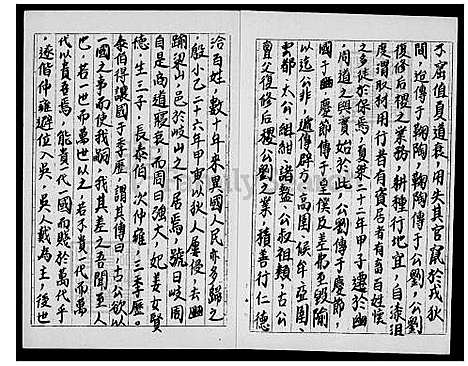 不窋值夏道衰用失其官竄於戎狄
間逈傳子鞠陶鞠陶傳子公劉公劉
復修后稷之業務耕種行地宜自漆沮
度渭取材用行者有資居者有畜百姓懷
之多徙於保焉夏桀二十二年甲子遷於豳
周道之興實始於此公劉傳子慶節
國于豳慶節傳子皇僕及差弗至毀隃
以迄公非遞傳辟方高圉侯牟亞圉
雲都太公組紺諸盩公叔祖類古公
亶父復修后稷公劉之業積善行仁德
洽百姓數十年來異國人民亦多歸之
殷小乙二十六年甲寅以狄人屢侵去豳
踰梁山邑於岐山之下居焉號曰岐周
自是商道寖衰而周日強大妃姜女賢
德生三子長泰伯次仲雍三季歷
泰伯得讓國于季歷謂其傳曰古公欲以
一國之事而使我嗣我其差之吾聞至人
也若一世而萬世以之若不貴一代而萬
代以貴吾焉能貴一代國而賤於萬代乎
遂偕仲雍避位入吳吳人戴為主後世